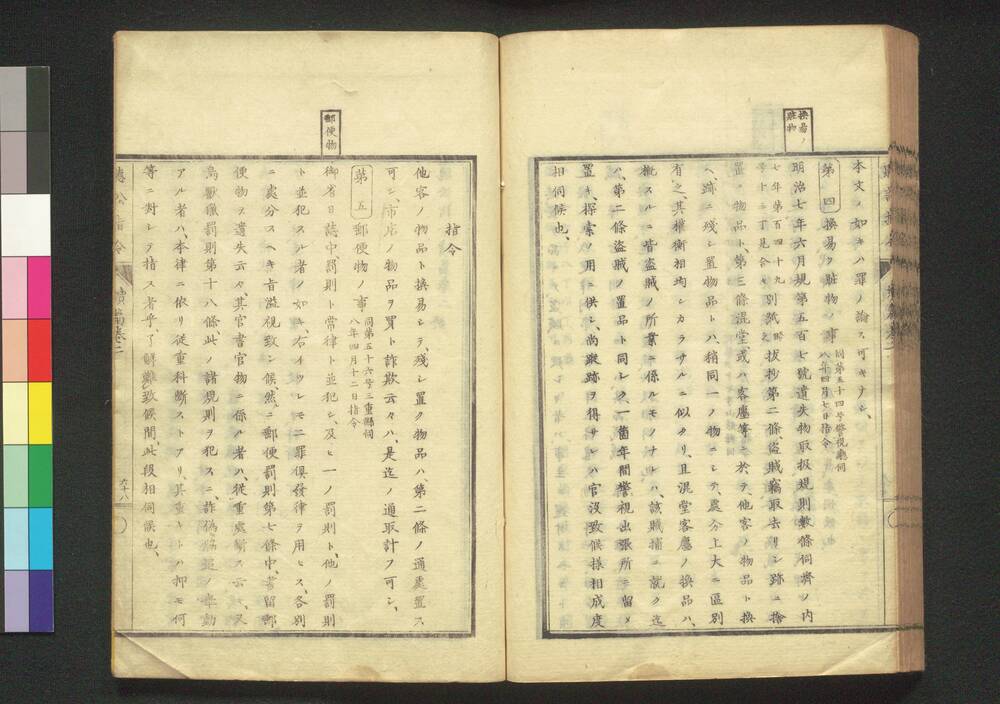 換易ノ
贓物
本文ノ如キハ罪ノ論ス可キナシ、
第四 換易ノ贓物ノ事 同第五十四号警視廳伺
八年四月七日指令
明治七年六月規第五百七號遺失物取扱規則數條伺濟ノ内
七年第百四十九
号十三丁見合 別紙畧之 拔抄第二條、盜賊竊取去リシ跡ニ捨
置ノ物品ト、第三條混堂或ハ客塵等ニ於テ、他客ノ物品ト換
ヘ、跡ニ殘シ置物品トハ、稍同一ノ物ニシテ、處分上大ニ區別
有之、其權衡相均シカラサルニ似タリ、且混堂客塵ノ換品ハ、
概スルニ皆盜賊ノ所業ニ係ルモノナレハ、該賊捕ニ就ク迄
ハ、第二條盜賊ノ置品ト同シク、一箇年間警視出張所ニ留メ
置キ、探索ノ用ニ供シ、尚蹤跡ヲ得サレハ官沒致候様相成度
相伺候也、
指令
他客ノ物品ト換易シテ、殘シ置ク物品ハ、第二條ノ通處置ス
可シ、市店ノ物品ヲ買ト詐欺云々ハ、是迄ノ通取計フ可シ、
郵便物
第五 郵便物ノ事 同第五十六号三重縣伺
八年四月十二日指令
御省日誌中、罰則ト常律ト並犯シ、及ヒ一ノ罰則ト、他ノ罰則
ト並犯スル者ノ如キ、右イツレモ二罪俱發律ヲ用ヒス、各別
ニ處分スヘキ旨溢視致シ候、然ニ郵便罰則第七條中、書留郵
便物ヲ遺失云々、其官書官物ニ係ル者ハ、從重處斷ス云々、又
鳥獸獵罰則第十八條、此ノ諸規則ヲ犯スニ、詐偽脇迫ノ擧動
アル者ハ、本律ニ依リ從重科斷ストアリ、其重キトハ抑モ何
等ニ對シテ指ス者乎、了解難致候間、此段相伺候也、
續編卷二
六十八